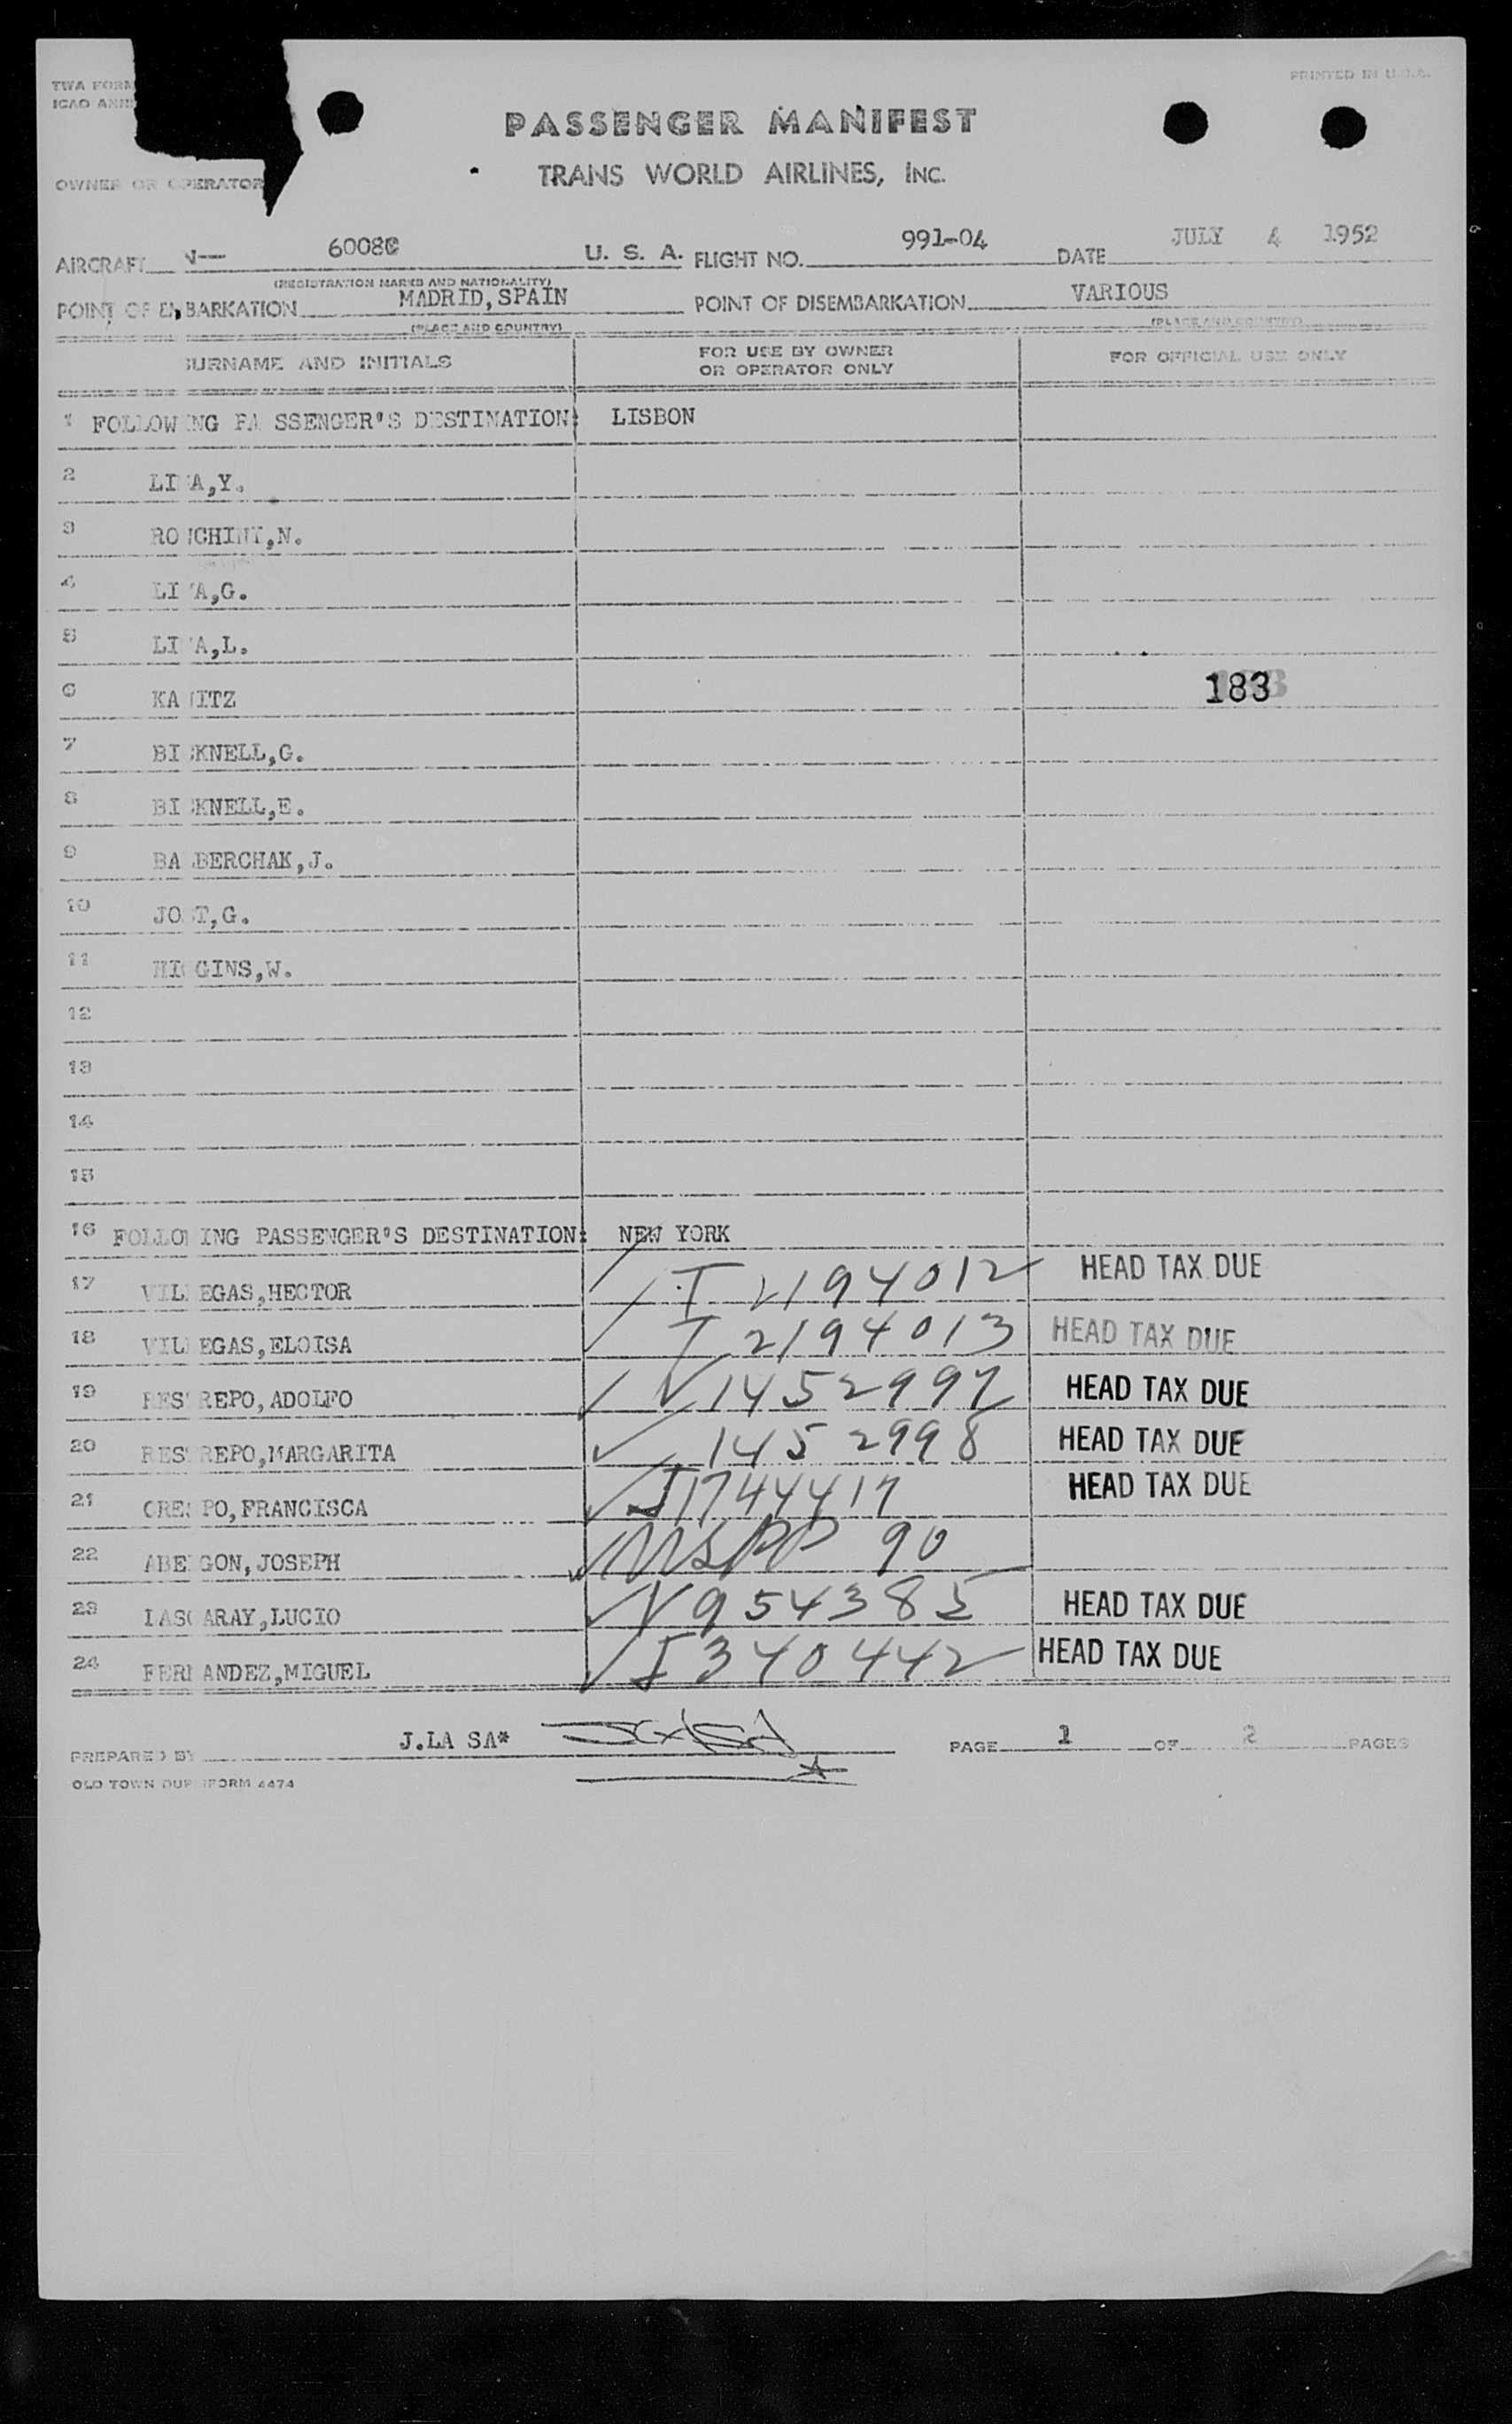 TWA FORM PRINTED IN U.S.A.
ICAO
PASSENGER MANIFEST
OWNER OR OPERATOR TRANS WORLD AIRLINES, INC.
AIRCRAFT N— 6008C U. S. A. FLIGHT NO. 991-04 DATE JULY 4 1952
(REGISTRATION MARKS AND NATIONALITY)
POINT OF EMBARKATION MADRID, SPAIN POINT OF DISEMBARKATION VARIOUS
(PLACE AND COUNTRY) (PLACE AND COUNTRY)
SURNAME AND INITIALS FOR USE BY OWNER OR OPERATOR ONLY FOR OFFICIAL USE ONLY
1 FOLLOWING PASSENGER'S DESTINATION: LISBON
2 Y.
3 N.
4 G.
5 L.
6 183
7 BICKNELL,G.
8 BICKNELL,E.
9 J.
10 JOST,G.
11 HIGGINS,W.
12
13
14
15
16 FOLLOWING PASSENGER'S DESTINATION: NEW YORK
17 VILLEGAS,HECTOR I 2194012 HEAD TAX DUE
18 VILLEGAS,ELOISA I 2194013 HEAD TAX DUE
19 RESTREPO,ADOLFO V 1452997 HEAD TAX DUE
20 RESTREPO,MARGARITA 1452998 HEAD TAX DUE
21 CRESPO,FRANCISCA I1744417 HEAD TAX DUE
22 JOSEPH USPP 90
23 LASCARAY,LUCIO V 954385 HEAD TAX DUE
24 FERNANDEZ,MIGUEL I 340442 HEAD TAX DUE
PREPARED BY J.LA SA* PAGE 1 OF 2 PAGES
OLD TOWN FORM 4474